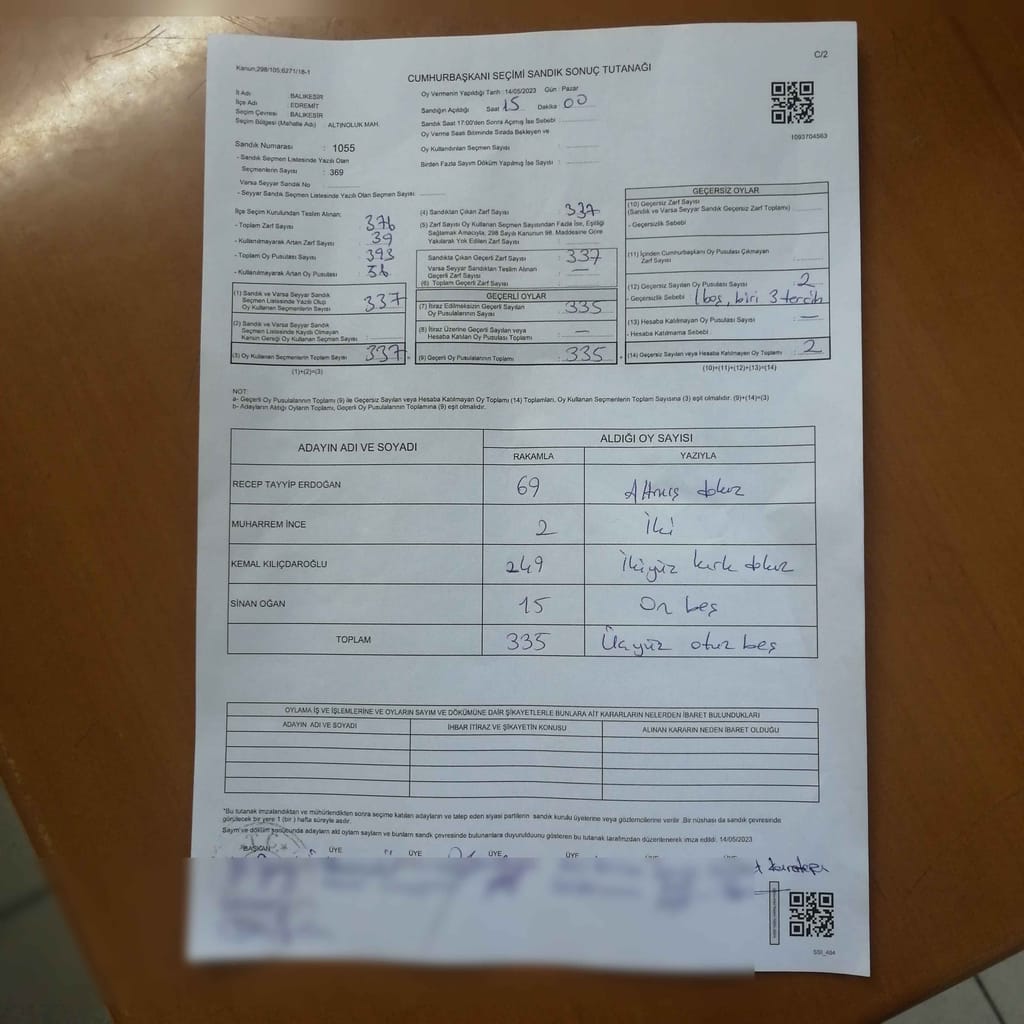 Kanun;298/105;6271/18-1
C/2
CUMHURBAŞKANI SEÇİMİ SANDIK SONUÇ TUTANAĞI
İl Adı : BALIKESİR
İlçe Adı : EDREMİT
Seçim Çevresi : BALIKESİR
Seçim Bölgesi (Mahalle Adı) : ALTINOLUK MAH.
Oy Vermenin Yapıldığı Tarih : 14/05/2023 Gün : Pazar
Sandığın Açıldığı Saat 15 Dakika 00
Sandık Saat 17:00'den Sonra Açılmış İse Sebebi :
Oy Verme Saati Bitiminde Sırada Bekleyen ve
Oy Kullandırılan Seçmen Sayısı :
Birden Fazla Sayım Döküm Yapılmış İse Sayısı :
1093704563
Sandık Numarası : 1055
- Sandık Seçmen Listesinde Yazılı Olan
Seçmenlerin Sayısı : 369
Varsa Seyyar Sandık No :
- Seyyar Sandık Seçmen Listesinde Yazılı Olan Seçmen Sayısı :
İlçe Seçim Kurulundan Teslim Alınan:
- Toplam Zarf Sayısı : 376
- Kullanılmayarak Artan Zarf Sayısı : 39
- Toplam Oy Pusulası Sayısı : 393
- Kullanılmayarak Artan Oy Pusulası :
(1) Sandık ve Varsa Seyyar Sandık
Seçmen Listesinde Yazılı Olup
Oy Kullanan Seçmenlerin Sayısı : 337
(2) Sandık ve Varsa Seyyar Sandık
Seçmen Listesinde Kaydı Olmayan
Kanun Gereği Oy Kullanan Seçmen Sayısı :
(3) Oy Kullanan Seçmenlerin Toplam Sayısı : 337
(1)+(2)=(3)
(4) Sandıktan Çıkan Zarf Sayısı : 337
(5) Zarf Sayısı Oy Kullanan Seçmen Sayısından Fazla İse, Eşitliği
Sağlamak Amacıyla, 298 Sayılı Kanunun 98. Maddesine Göre
Yakılarak Yok Edilen Zarf Sayısı :
Sandıkta Çıkan Geçerli Zarf Sayısı : 337
Varsa Seyyar Sandıktan Teslim Alınan
Geçerli Zarf Sayısı : —
(6) Toplam Geçerli Zarf Sayısı :
GEÇERLİ OYLAR
(7) İtiraz Edilmeksizin Geçerli Sayılan
Oy Pusulasının Sayısı : 335
(8) İtiraz Üzerine Geçerli Sayılan veya
Hesaba Katılan Oy Pusulası Toplamı : —
(9) Geçerli Oy Pusulalarının Toplamı : 335
GEÇERSİZ OYLAR
(10) Geçersiz Zarf Sayısı
(Sandık ve Varsa Seyyar Sandık Geçersiz Zarf Toplamı) :
- Geçersizlik Sebebi :
(11) İçinden Cumhurbaşkanı Oy Pusulası Çıkmayan
Zarf Sayısı :
(12) Geçersiz Sayılan Oy Pusulası Sayısı : 2
- Geçersizlik Sebebi : 1 boş, biri 3 tercih
(13) Hesaba Katılmayan Oy Pusulası Sayısı : —
- Hesaba Katılmama Sebebi :
(14) Geçersiz Sayılan veya Hesaba Katılmayan Oy Toplamı : 2
(10)+(11)+(12)+(13)=(14)
NOT:
a- Geçerli Oy Pusulalarının Toplamı (9) ile Geçersiz Sayılan veya Hesaba Katılmayan Oy Toplamı (14) Toplamları, Oy Kullanan Seçmenlerin Toplam Sayısına (3) eşit olmalıdır. (9)+(14)=(3)
b- Adayların Aldığı Oyların Toplamı, Geçerli Oy Pusulalarının Toplamına (9) eşit olmalıdır.
ADAYIN ADI VE SOYADI
ALDIĞI OY SAYISI
RAKAMLA YAZIYLA
RECEP TAYYİP ERDOĞAN 69 Altmış dokuz
MUHARREM İNCE 2 İki
KEMAL KILIÇDAROĞLU 249 İkiyüz kırk dokuz
SİNAN OĞAN 15 On beş
TOPLAM 335 Üçyüz otuz beş
OYLAMA İŞ VE İŞLEMLERİNE VE OYLARIN SAYIM VE DÖKÜMÜNE DAİR ŞİKAYETLERLE BUNLARA AİT KARARLARIN NELERDEN İBARET BULUNDUKLARI
ADAYIN ADI VE SOYADI İHBAR İTİRAZ VE ŞİKAYETİN KONUSU ALINAN KARARIN NEDEN İBARET OLDUĞU
*Bu tutanak imzalandıktan ve mühürlendikten sonra seçime katılan adayların ve talep eden siyasi partilerin sandık kurulu üyelerine veya gözlemcilerine verilir .Bir nüshası da sandık çevresinde
görülecek bir yere 1 (bir ) hafta süreyle asılır.
Sayım ve döküm sonucunda adayların aldığı oyların sayılarını ve bunların sandık çevresinde bulunanlara duyurulduğunu gösteren bu tutanak tarafımızdan düzenlenerek imza edildi. 14/05/2023
BAŞKAN ÜYE ÜYE ÜYE ÜYE
SSİ_404